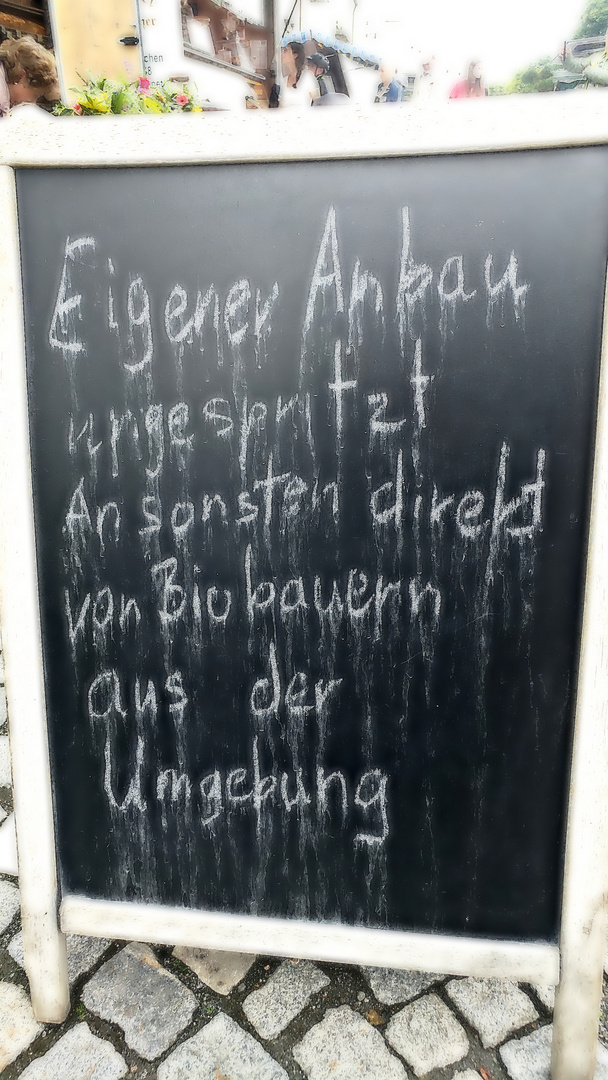 Eigener Anbau
ungespritzt
Ansonsten direkt
von Biobauern
aus der
Umgebung